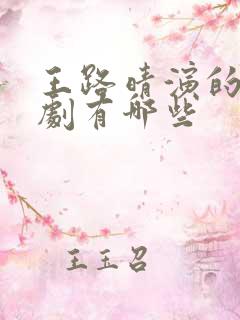 王路晴演的
劇有哪些
王玉召